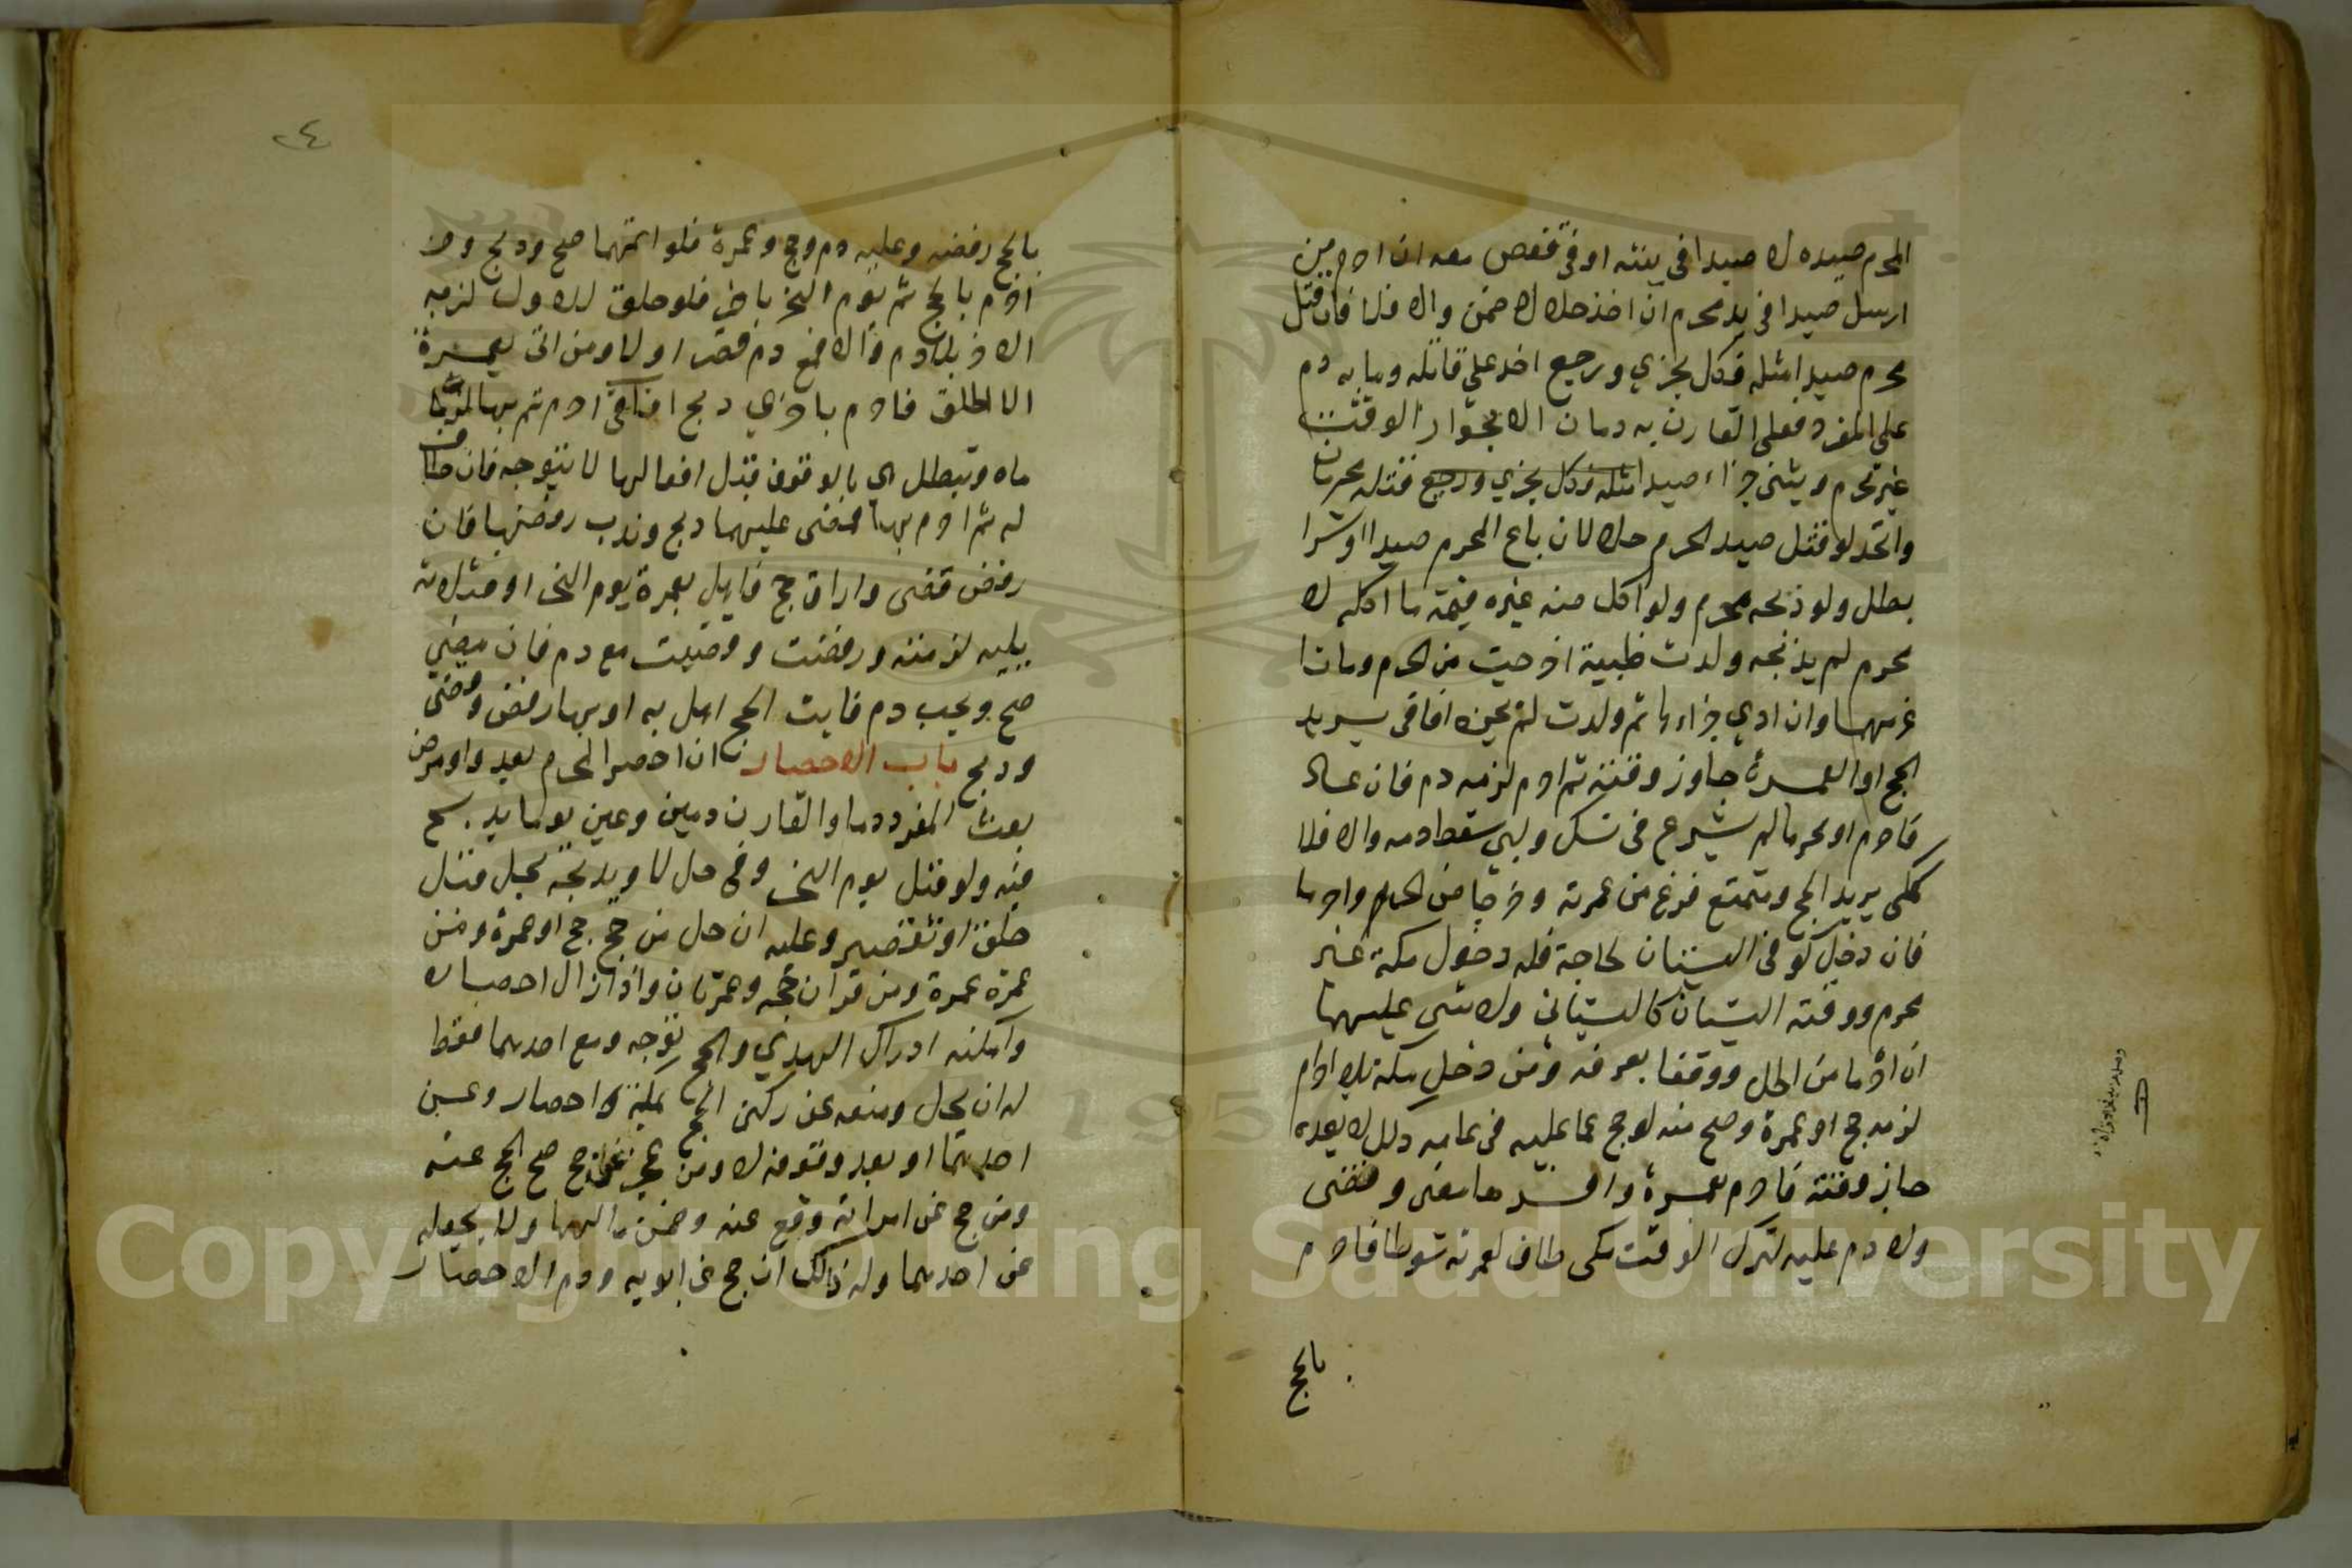 المحرم صيده لا صيدا في بيته او في قفص معه ان احرم من
ارسل صيدا في يد محرم ان اخذ حلالا ضمن والا فلا فان قتل
محرم صيدا مثله فكل يجزي ورجع اخذ علي قاتله وما به دم
علي المفرد فعلي القارن به دمان الا بجواز الوقت
غير محرم ويثني جزاء صيد قتله محرمان
واتحد لو قتل صيد الحرم حلالان باع المحرم صيدا او شرا
بطل ولو ذبحه محرم ولو اكل منه غيره قيمة ما اكله لا
محرم لم يذبحه ولدت ظبية اخرجت من الحرم وماتا
غرمهما وان ادي جزاءها ثم ولدت لم يجزه افاقي يريد
الحج او العمرة جاوز وقته ثم احرم لزمه دم فان عاد
فاحرم او محرما لم يشرع في نسك ولبي سقط دمه والا فلا
كمكي يريد الحج ومتمتع فرغ من عمرته وخرجا من الحرم واحرما
فان دخل كوفي البستان لحاجة فله دخول مكة غير
محرم ووقته البستان كالبستاني ولا شي عليهما
ان احرما من الحل ووقفا بعرفه ومن دخل مكة بلا احرام
لزمه حج او عمرة وصح منه لو حج عما عليه في عامه ذلك لا بعده
جاز وقته فاحرم بعمرة وافسدها مضي وقضي
ولا دم عليه لترك الوقت مكي طاف لعمرته شوطا فاحرم
بالحج
٢٤
بالحج رفضه وعليه دم وحج وعمرة فلو اتمهما صح وذبح ومن
احرم بالحج ثم يوم النحر باخر فلو حلق للاول لزمه
الاخر بلا دم والا فمع دم قصر او لا ومن اتي بعمرة
الا الحلق فاحرم باخري ذبح افاقي احرم ثم بها لزماه
وتبطل اي بالوقوف قبل افعالها لا بتوجه فان طاف
له ثم احرم بها فمضي عليهما ذبح وندب رفضها فان
رفض قضي واراق حج فاهل بعمرة يوم النحر او ثلاثة
يليه لزمته ورفضت وقضيت مع دم فان مضي
صح ويجب دم فايت الحج اهل به او بها رفض وقضي
وذبح باب الاحصار ان احصر المحرم بعدو او مرض
بعث المفرد دما والقارن دمين وعين يوما يذبح
فيه ولو قبل يوم النحر وفي حل لا وبذبحه يحل قبل
حلق او تقصير وعليه ان حل من حج حج وعمرة ومن
عمرة عمرة ومن قران حجه وعمرتان واذا زال احصاره
وامكنه ادراك الهدي والحج توجه ومع احدهما فقط
له ان يحل ومنعه عن ركني الحج بمكة احصار وعن
احدهما او بعد وقوفه لا ومن عجز حج صح الحج عنه
ومن حج عن امرائه وقع عنه وضمن مالهما ولا يجعله
عن احدهما وله ذالك ان حج عن ابويه ودم الاحصار